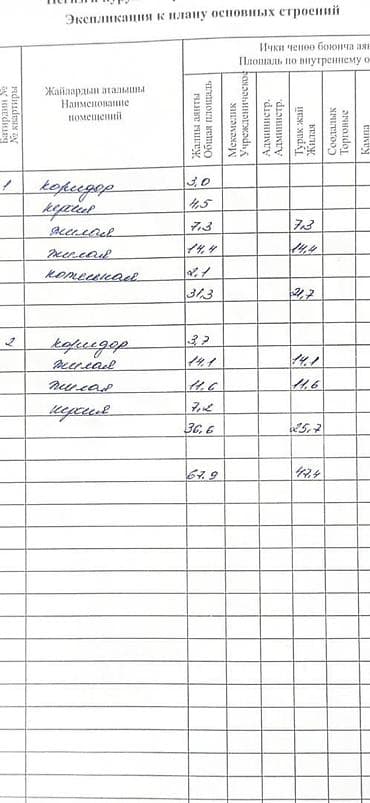 Экспликация к плану основных строений
Ички ченөө боюнча
Площадь по внутреннему
Батирдин №
№ квартиры
Жайлардын аталышы
Наименование
помещений
Жалпы аянты
Общая площадь
Мекемелик
Учрежденческое
Администр.
Администр.
Турак жай
Жилая
Соодалык
Торговые
1 коридор 3,0
кухня 4,5
жилая 7,3 7,3
жилая 14,4 14,4
котельная 2,1
31,3 21,7
2 коридор 3,7
жилая 14,1 14,1
жилая 11,6 11,6
кухня 7,2
36,6 25,7
67,9 47,4